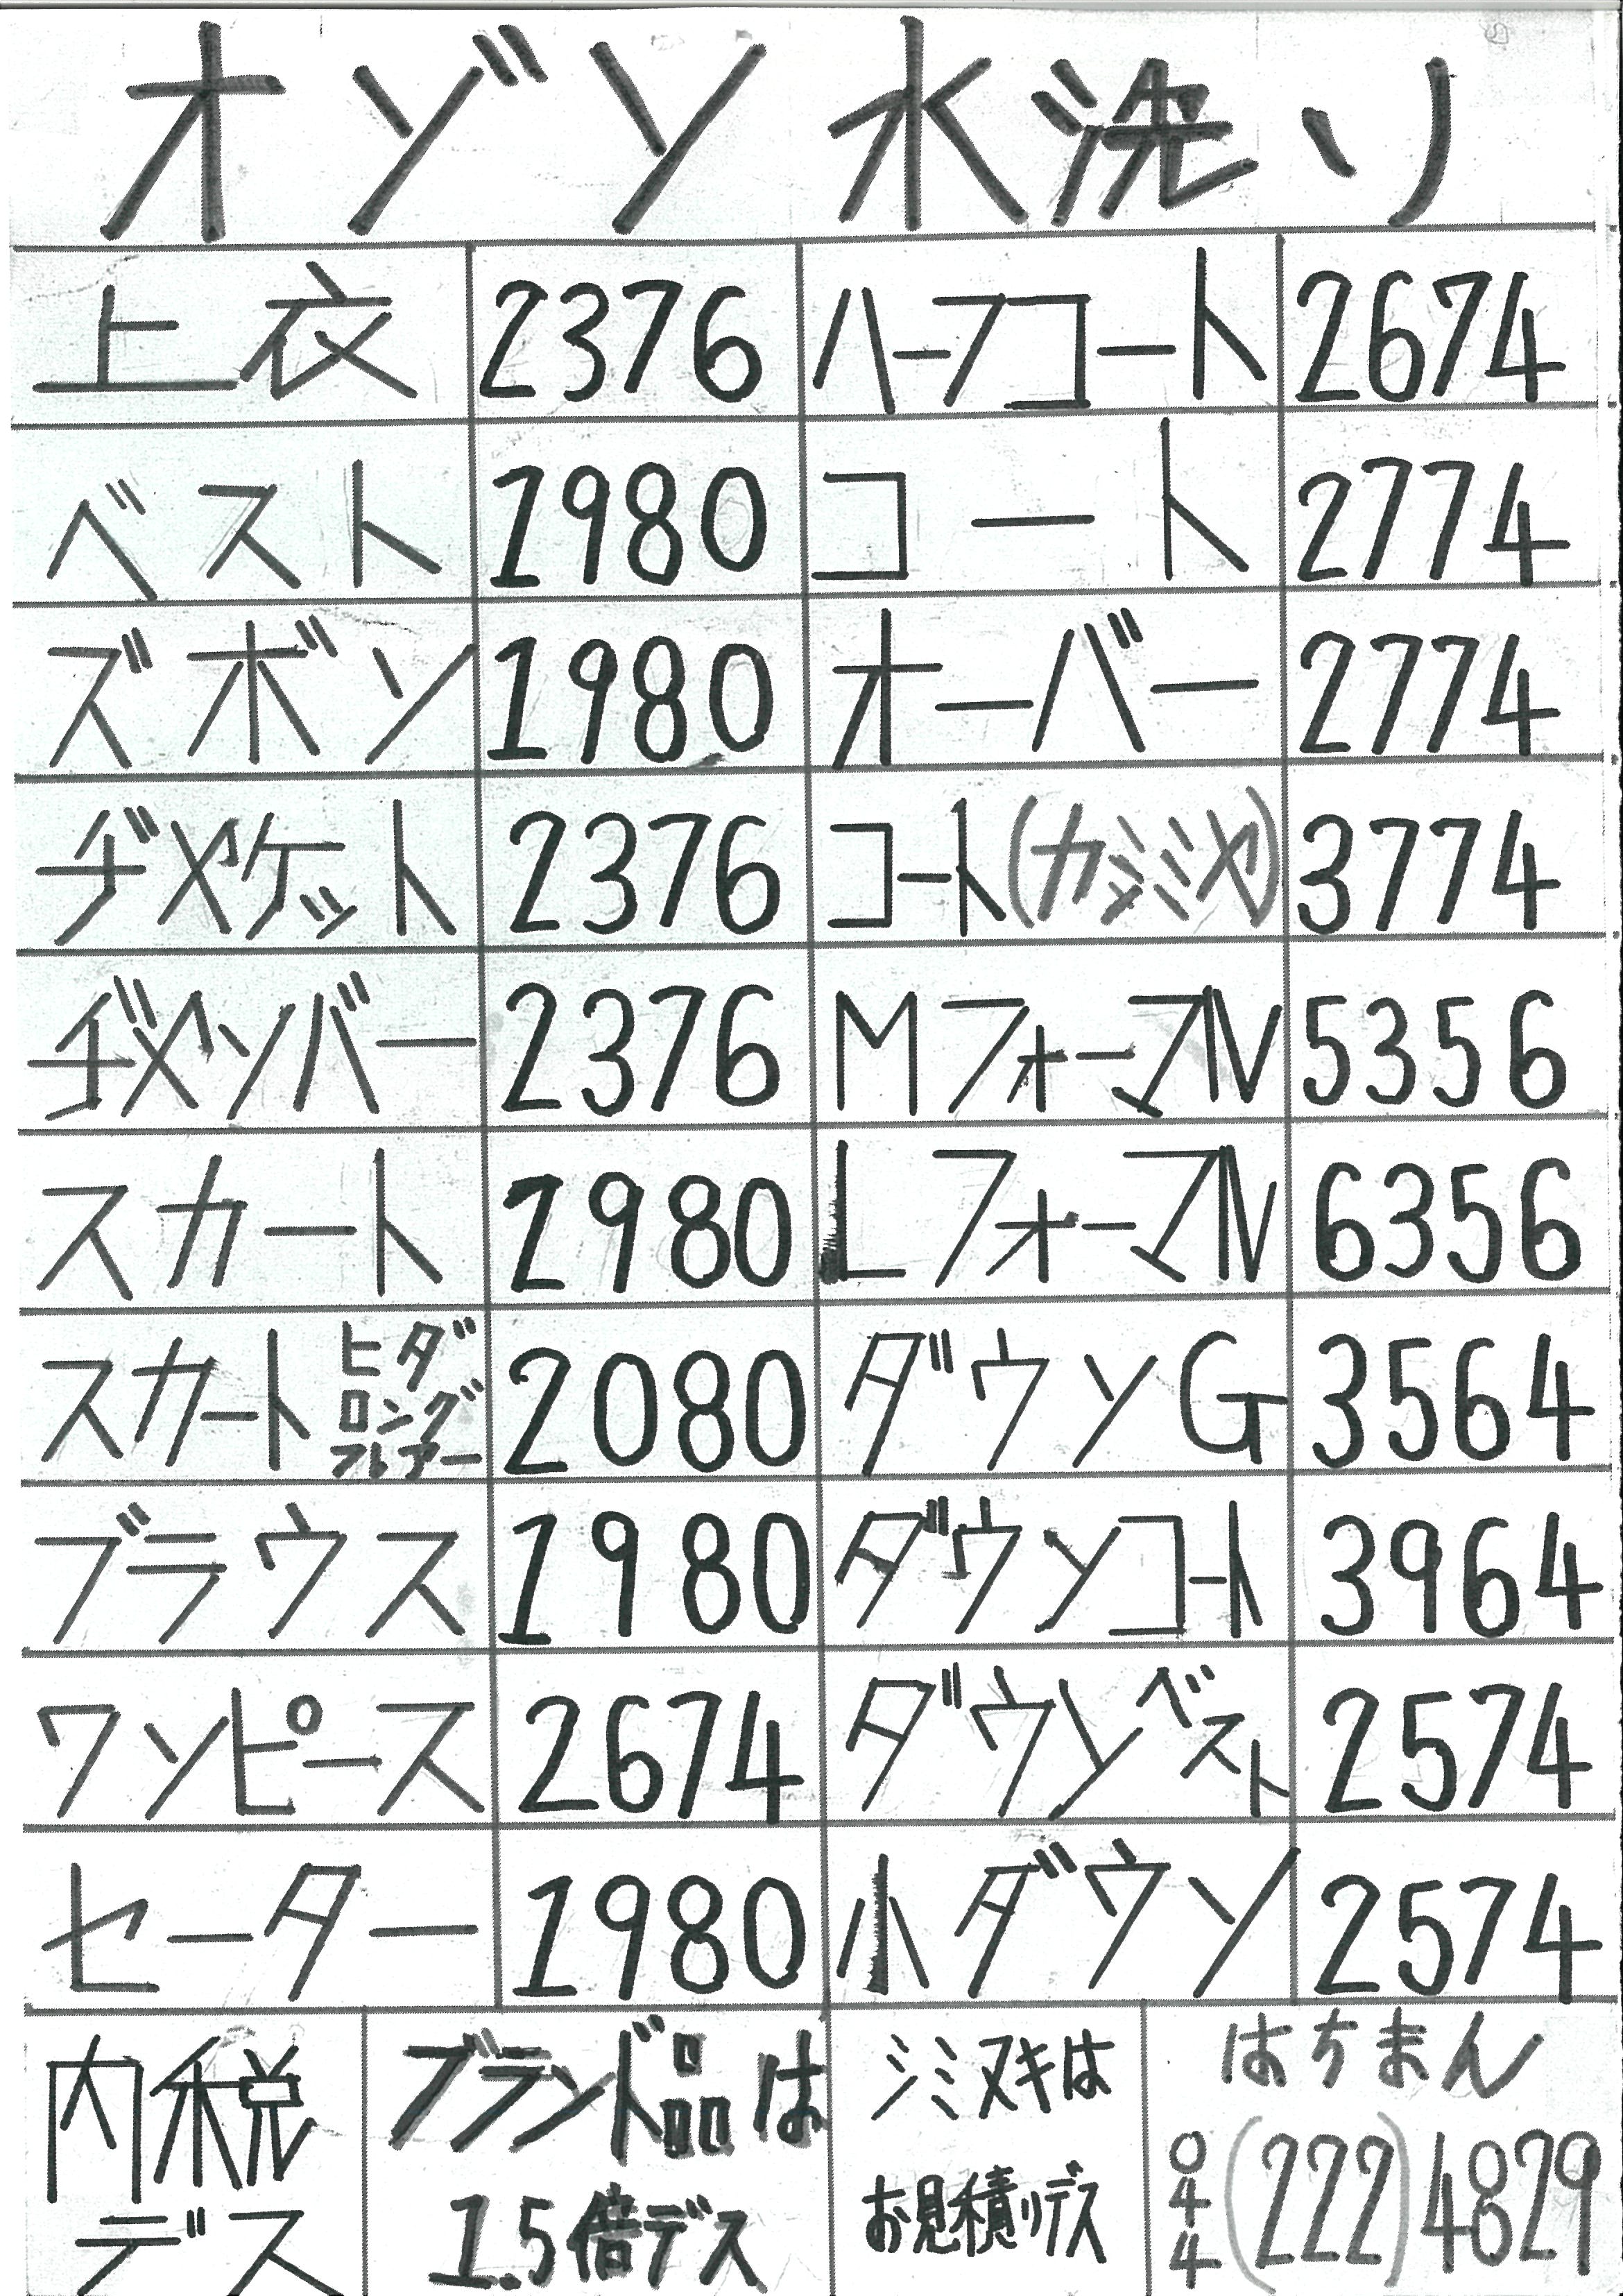 オゾン水洗い
上衣 2376 ハーフコート 2674
ベスト 1980 コート 2774
ズボン 1980 オーバー 2774
ヂャケット 2376 コート(カシミヤ) 3774
ヂャンバー 2376 Mフォーマル 5356
スカート 1980 Lフォーマル 6356
スカート ヒダ ロング フレアー 2080 ダウンG 3564
ブラウス 1980 ダウンコート 3964
ワンピース 2674 ダウンベスト 2574
セーター 1980 小ダウン 2574
内税
デス
ブランド品は
1.5倍デス
シミヌキは
お見積りデス
はちまん
044(222)4829